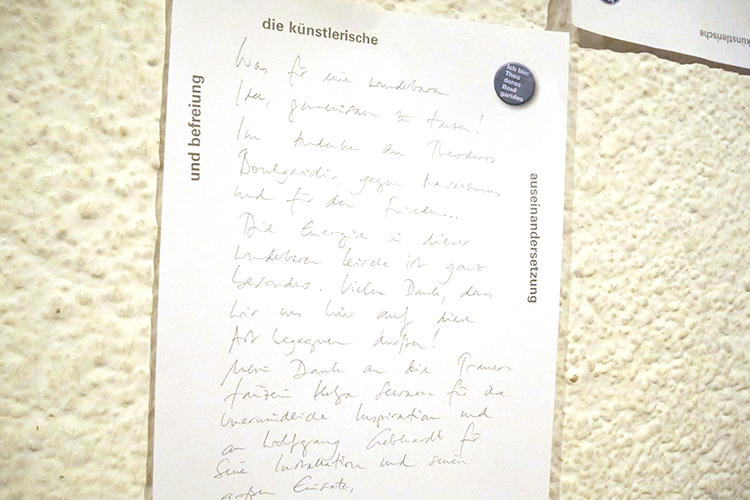 die künstlerische
und befreiung
auseinandersetzung
Ich bin:
Theo
doros
Boul
garides
künstlerische
Was für eine wunderbare
Idee, gemeinsam zu tanzen!
Im Andenken an Theodoros
Boulgaridis, gegen Rassismus
und für den Frieden...
Die Energie in dieser
wunderbaren Kirche ist ganz
besonders. Vielen Dank, dass
wir uns hier auf diese
Art begegnen durften!
Mein Dank an die Trauer-
tänzerin Helga für ihre
unermüdliche Inspiration und
an Wolfgang Gebhardt für
seine Installation und seinen
großen Einsatz,